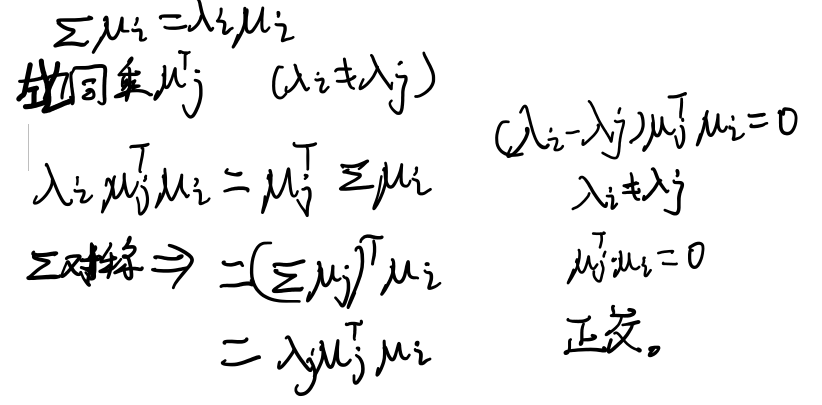 Σμᵢ = λᵢμᵢ
左同乘 μⱼᵀ (λᵢ ≠ λⱼ)
λᵢμⱼᵀμᵢ = μⱼᵀ Σμᵢ
Σ对称 ⇒ = (Σμⱼ)ᵀμᵢ
= λⱼμⱼᵀμᵢ
(λᵢ - λⱼ)μⱼᵀμᵢ = 0
λᵢ ≠ λⱼ
μⱼᵀ·μᵢ = 0
正交。